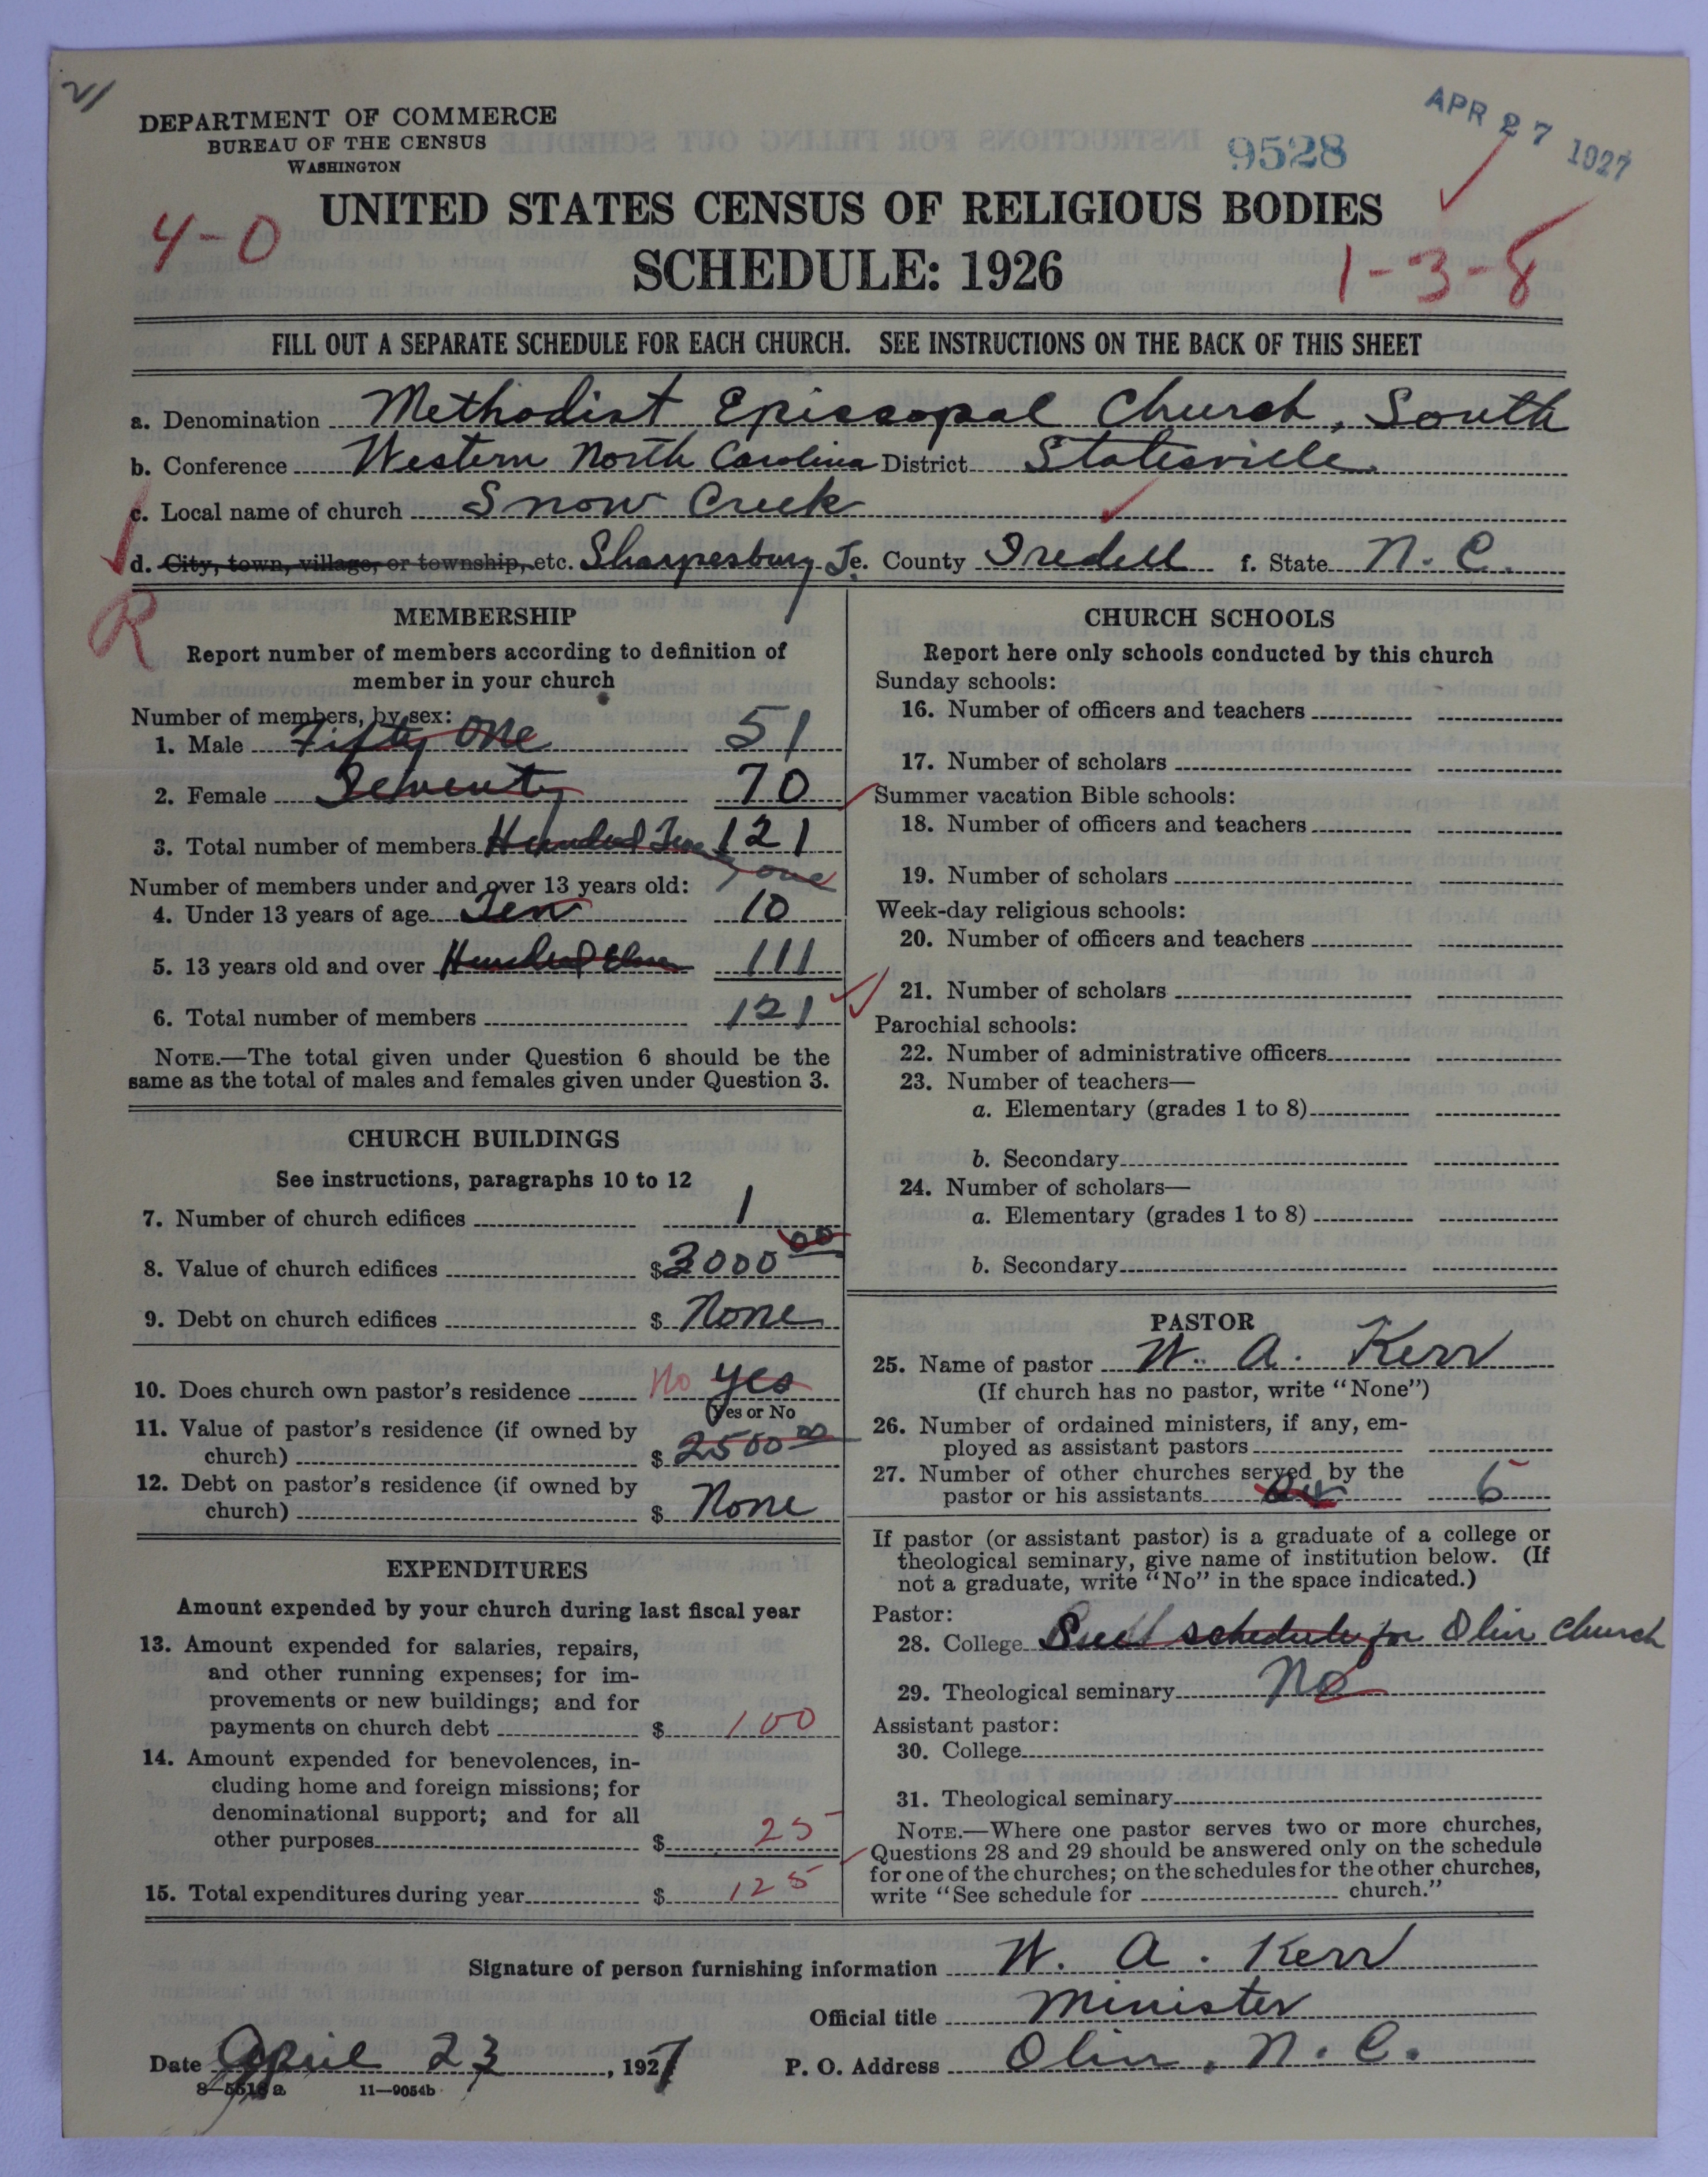 21
DEPARTMENT OF COMMERCE
BUREAU OF THE CENSUS
WASHINGTON
9528
APR 27 1927
UNITED STATES CENSUS OF RELIGIOUS BODIES
4-0
SCHEDULE: 1926
1-3-8
FILL OUT A SEPARATE SCHEDULE FOR EACH CHURCH. SEE INSTRUCTIONS ON THE BACK OF THIS SHEET
a. Denomination Methodist Episcopal Church, South
b. Conference Western North Carolina District Statesville
c. Local name of church Snow Creek
d. City, town, village, or township, etc. Sharpesburg e. County Iredell f. State N. C.
R
MEMBERSHIP
Report number of members according to definition of
member in your church
Number of members, by sex:
1. Male Fifty One 51
2. Female Seventy 70
3. Total number of members Hundred Twenty one 121
Number of members under and over 13 years old:
4. Under 13 years of age Ten 10
5. 13 years old and over Hundred Eleven 111
6. Total number of members 121
NOTE.—The total given under Question 6 should be the
same as the total of males and females given under Question 3.
CHURCH BUILDINGS
See instructions, paragraphs 10 to 12
7. Number of church edifices 1
8. Value of church edifices $3000 00
9. Debt on church edifices $ None
10. Does church own pastor's residence No Yes
(Yes or No
11. Value of pastor's residence (if owned by
church) $ 2500 00
12. Debt on pastor's residence (if owned by
church) $ None
EXPENDITURES
Amount expended by your church during last fiscal year
13. Amount expended for salaries, repairs,
and other running expenses; for im-
provements or new buildings; and for
payments on church debt $ 100
14. Amount expended for benevolences, in-
cluding home and foreign missions; for
denominational support; and for all
other purposes $ 25
15. Total expenditures during year $ 125
CHURCH SCHOOLS
Report here only schools conducted by this church
Sunday schools:
16. Number of officers and teachers
17. Number of scholars
Summer vacation Bible schools:
18. Number of officers and teachers
19. Number of scholars
Week-day religious schools:
20. Number of officers and teachers
21. Number of scholars
Parochial schools:
22. Number of administrative officers
23. Number of teachers—
a. Elementary (grades 1 to 8)
b. Secondary
24. Number of scholars—
a. Elementary (grades 1 to 8)
b. Secondary
PASTOR
25. Name of pastor W. A. Kerr
(If church has no pastor, write "None")
26. Number of ordained ministers, if any, em-
ployed as assistant pastors
27. Number of other churches served by the
pastor or his assistants
If pastor (or assistant pastor) is a graduate of a college or
theological seminary, give name of institution below. (If
not a graduate, write "No" in the space indicated.)
Pastor:
28. College schedule for Olin church
29. Theological seminary No
Assistant pastor:
30. College
31. Theological seminary
NOTE.—Where one pastor serves two or more churches,
Questions 28 and 29 should be answered only on the schedule
for one of the churches; on the schedules for the other churches,
write "See schedule for church."
Signature of person furnishing information W. A. Kerr
Official title Minister
Date April 23, 1927 P. O. Address Olin, N. C.
8—5518 a 11—9054b